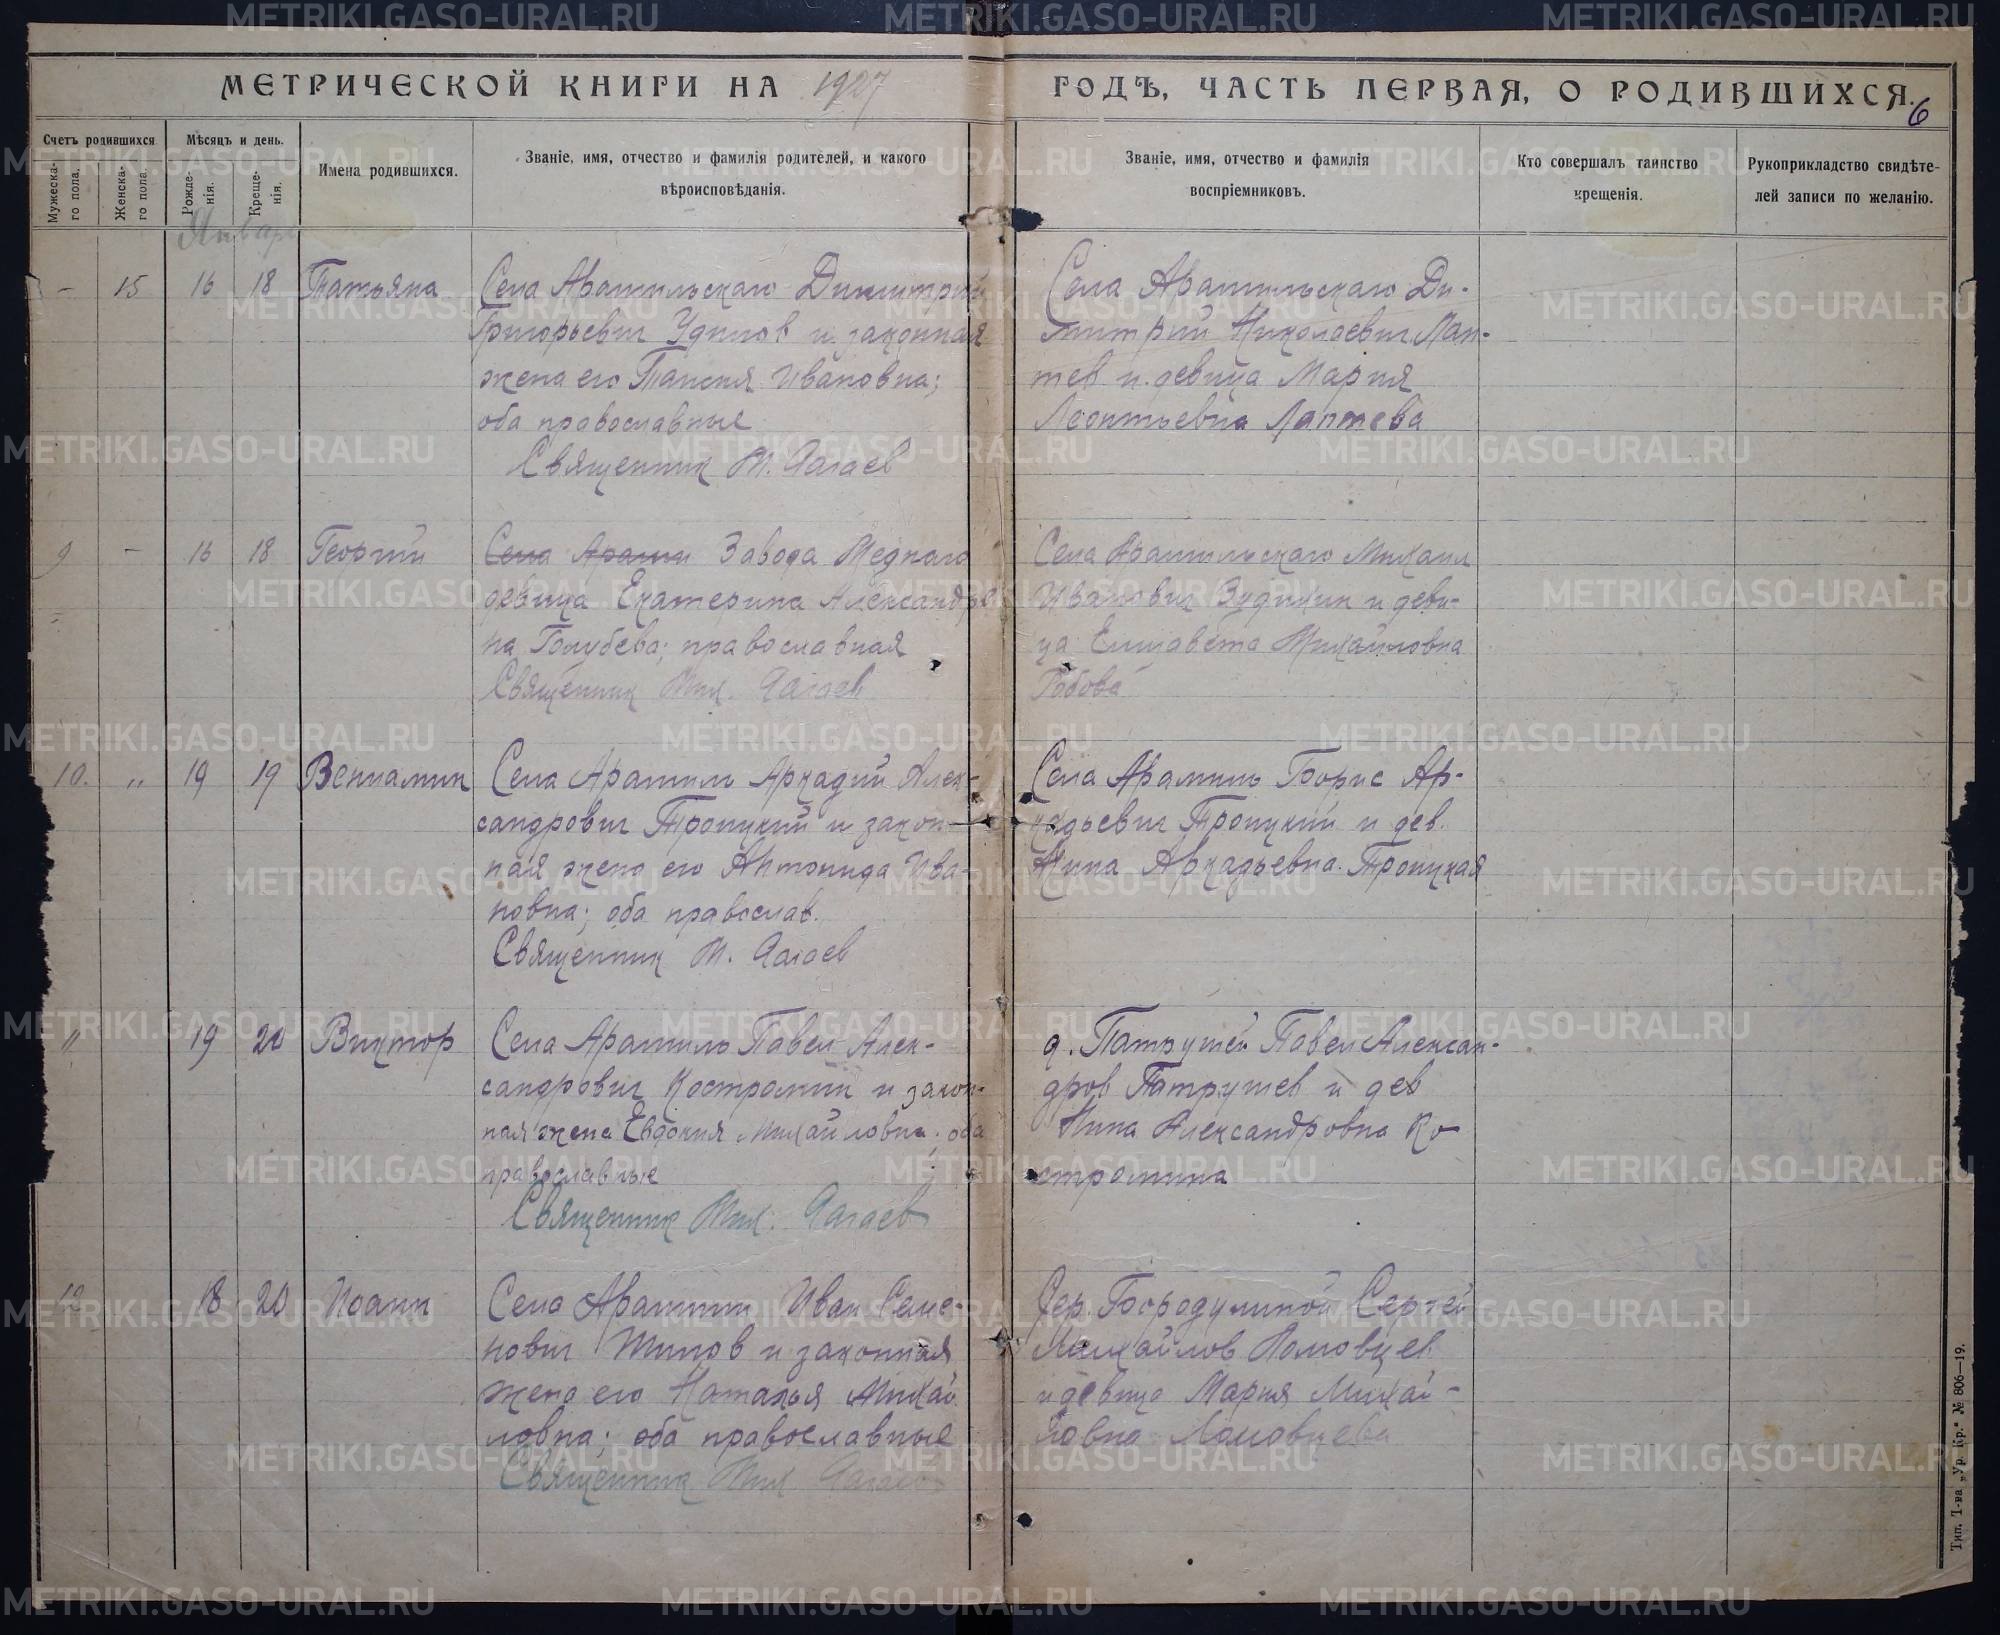 МЕТРИЧЕСКОЙ КНИГИ НА 1927 ГОДЪ, ЧАСТЬ ПЕРВАЯ, О РОДИВШИХСЯ.
6
Счетъ родившихся
Мужеска-го пола.
Женска-го пола.
Мѣсяцъ и день.
Рожде-нія.
Креще-нія.
Имена родившихся.
Званіе, имя, отчество и фамилія родителей, и какого
вѣроисповѣданія.
Званіе, имя, отчество и фамилія
воспріемниковъ.
Кто совершалъ таинство
крещенія.
Рукоприкладство свидѣте-
лей записи по желанію.
Январь
- 15 16 18 Татьяна
Села Арамильскаго Димитрий
Григорьевич Удилов и законная
жена его Таисия Ивановна;
оба православные
Священник М. Ягаев
Села Арамильскаго Ди-
митрий Николаевич Лап-
тев и девица Мария
Леонтьевна Лаптева
9 - 16 18 Георгий
Села Арами Завода Меднаго
девица Екатерина Александров
на Голубева; православная
Священник Мих. Ягаев
Села Арамильскаго Михаил
Иванович Зудихин и деви-
ца Елисавета Михайловна
10. " 19 19 Вениамин
Села Арамиль Аркадий Алек-
сандрович Троицкий и закон-
ная жена его Антонида Ива-
новна; оба православ.
Священник М. Ягаев
Села Арамиль Борис Ар-
кадьевич Троицкий и дев.
Нина Аркадьевна Троицкая
" 19 20 Виктор
Села Арамиль Павел Алек-
сандрович Костромин и закон-
ная жена Евдокия Михайловна; оба
православные
Священник Мих. Ягаев
д. Патрушей Павел Алексан-
дров Патрушев и дев
Нина Александровна Ко-
стромина
12 18 20 Иоанн
Села Арамили Иван Семе-
нович Шипов и законная
жена его Наталья Михай
ловна; оба православные
Священник Мих Ягаев
Дер. Бородулиной Сергей
Михайлов Ломовцев
и девица Мария Михай-
ловна Ломовцева
Тип. Т-ва „Ур. Кр." № 806—19.
METRIKI.GASO-URAL.RU